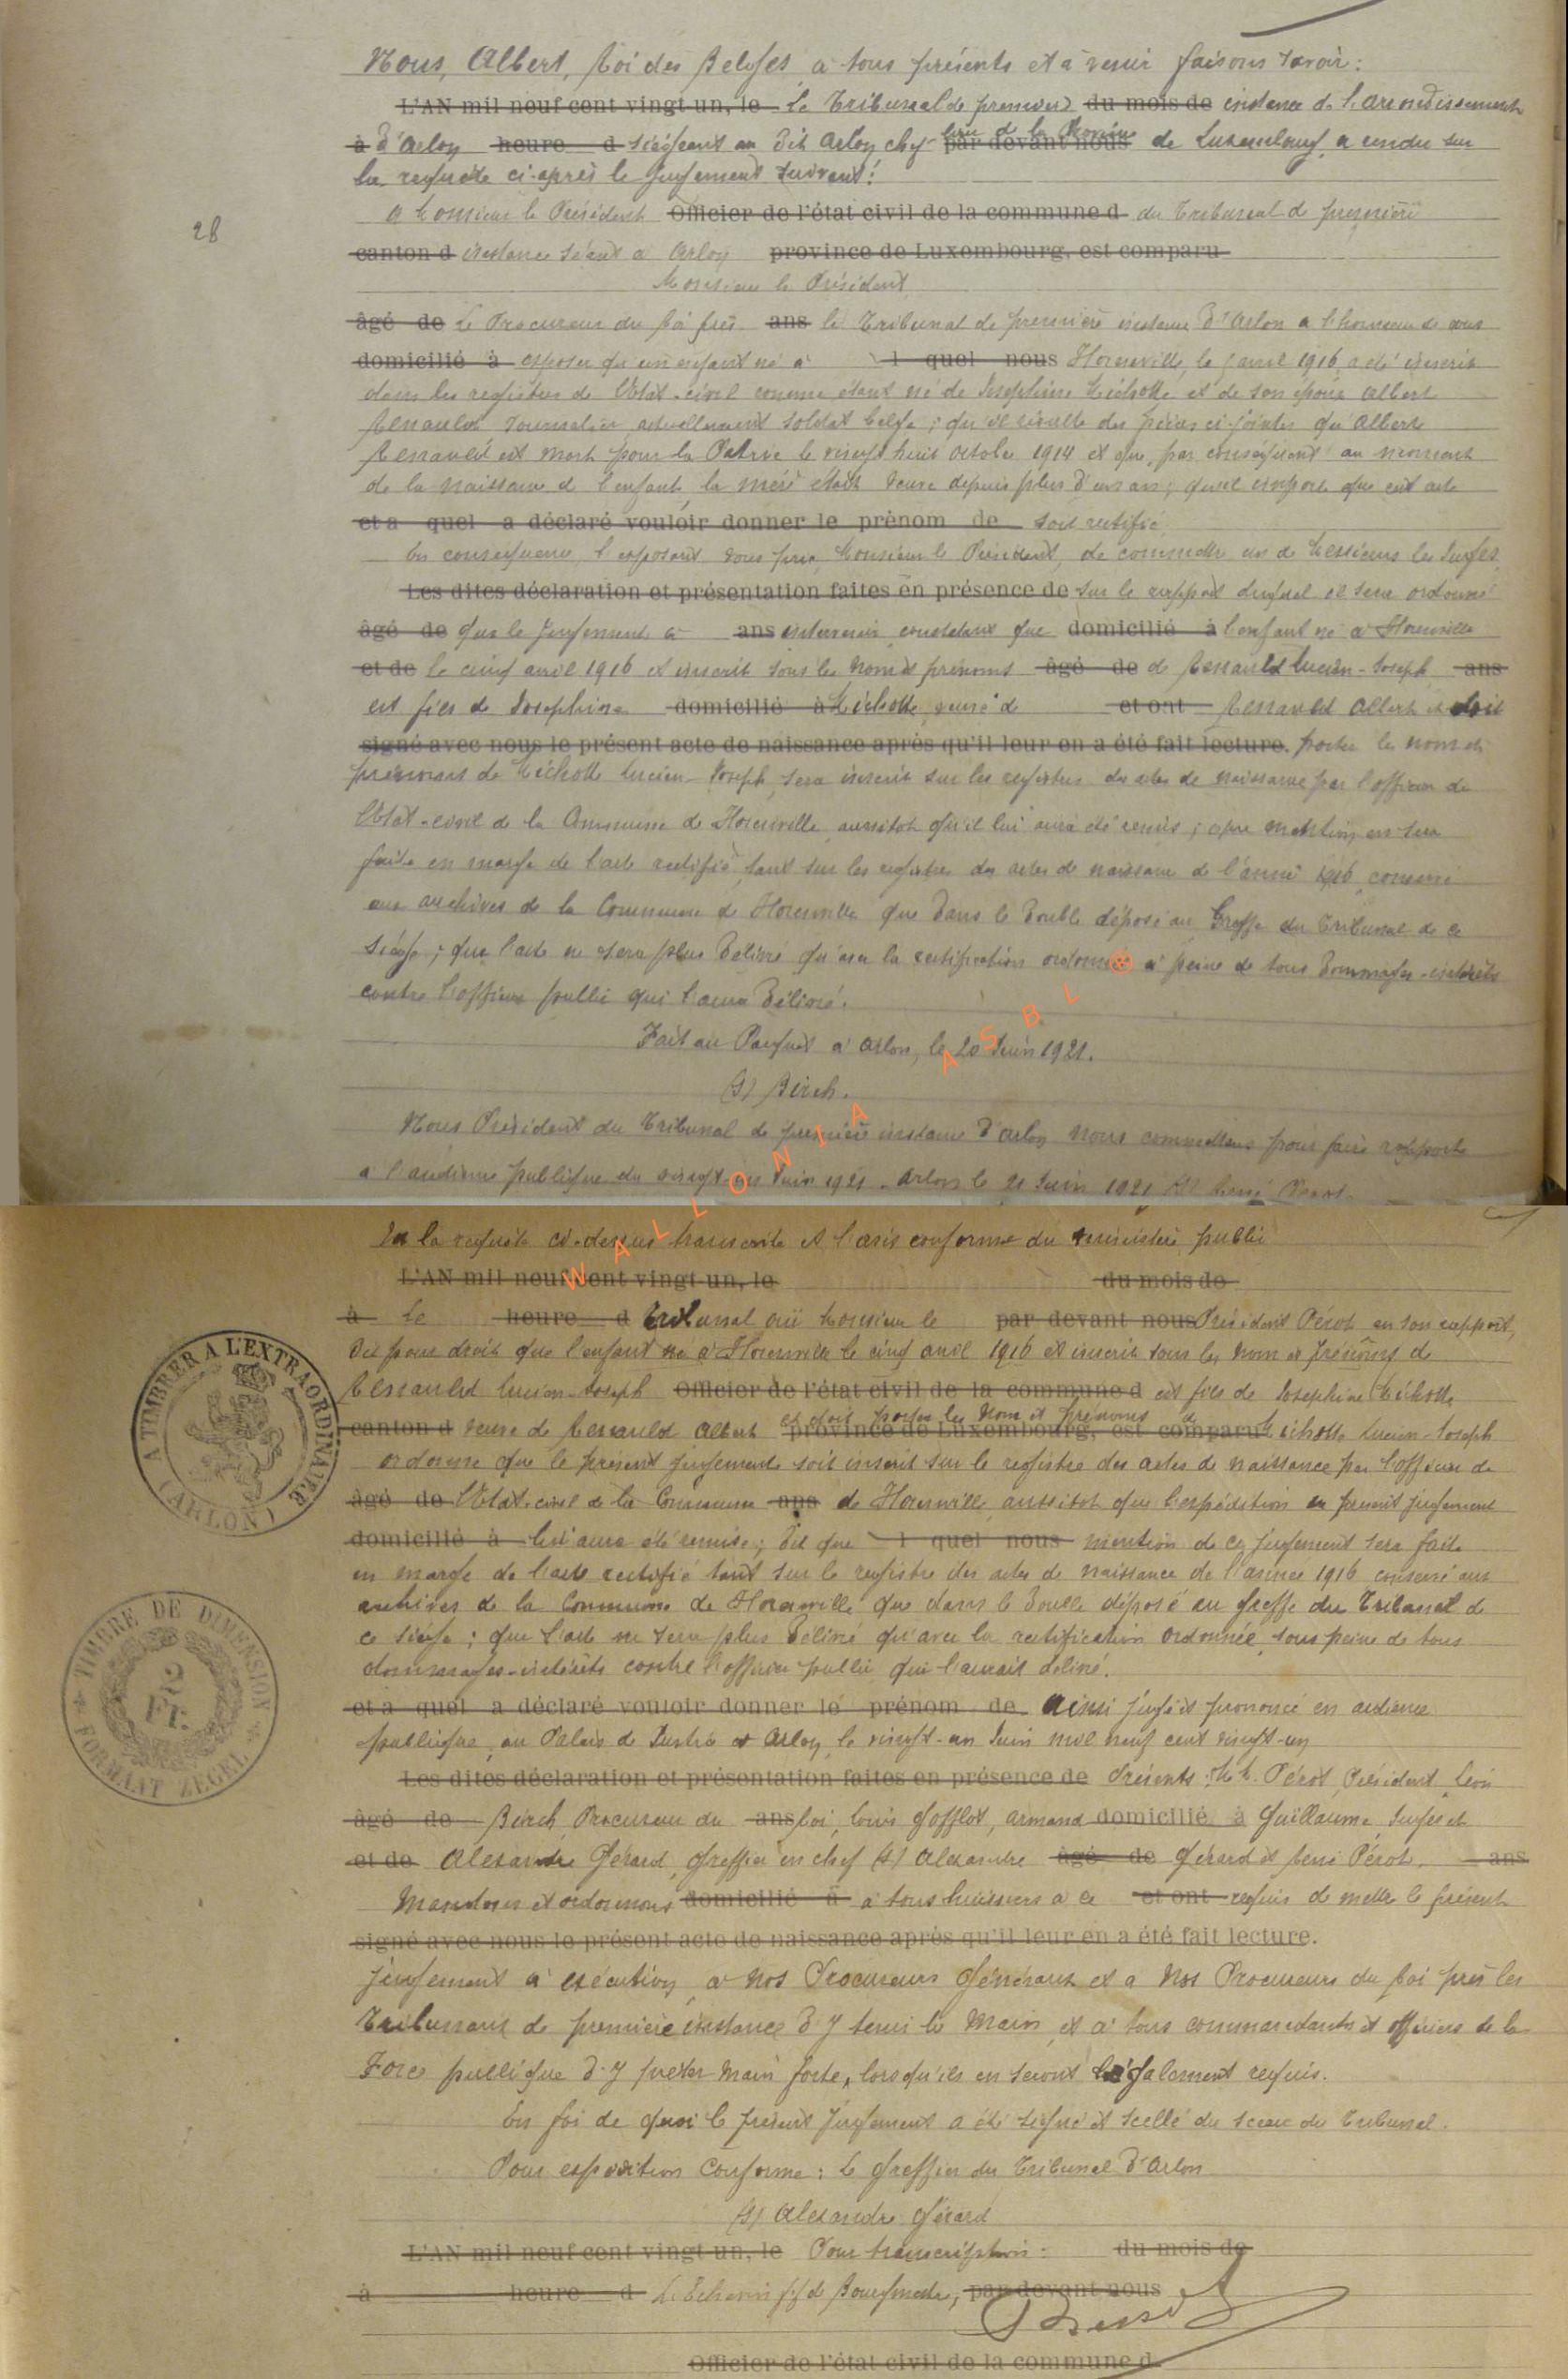 Nous, Albert, Roi des Belges à tous présents et à venir faisons savoir :
L'AN mil neuf cent vingt-un, le Le Tribunal de première du mois de instance de l'arrondissement
à d'Arlon heure d siégeant au dit Arlon chef-lieu de la Province par devant nous de Luxembourg a rendu sur
la requête ci-après le jugement suivant :
A Monsieur le Président Officier de l'état civil de la commune d du Tribunal de première
28
canton d instance séant à Arlon province de Luxembourg, est comparu
Monsieur le Président
âgé de Le Procureur du Roi près ans le Tribunal de première instance d'Arlon a l'honneur de vous
domicilié à exposer qu'un enfant né à l quel nous le avril 1916 a été inscrit
dans les registres de l'Etat-civil comme étant né de Joséphine Michotte et de son époux Albert
journalier actuellement soldat belge ; qu'il résulte des pièces ci-jointes qu'Albert
est mort pour la Patrie le vingt huit octobre 1914 et que, par conséquent au moment
de la naissance de l'enfant, la mère était veuve depuis plus d'un an ; qu'il importe que cet acte
et a quel a déclaré vouloir donner le prénom de soit rectifié
En conséquence, l'exposant vous prie, Monsieur le Président, de commettre un de Messieurs les Juges
Les dites déclaration et présentation faites en présence de sur le rapport duquel il sera ordonné
âgé de que le jugement à ans intervenir constatant que domicilié à l'enfant né à
et de le cinq avril 1916 et inscrit sous les nom et prénoms âgé de de Lucien-Joseph ans
est fils de Joséphine domicilié à Michotte, veuve de et ont Albert et doit
signé avec nous le présent acte de naissance après qu'il leur en a été fait lecture. porter les nom et
prénoms de Michotte Lucien-Joseph, sera inscrit sur les registres des actes de naissance par l'officier de
l'Etat-civil de la Commune de aussitôt qu'il lui aura été remis ; que mention en sera
faite en marge de l'acte rectifié, tant sur les registres des actes de naissance de l'année 1916 conservé
aux archives de la Commune de que dans le double déposé au Greffe du Tribunal de ce
siège ; que l'acte ne sera plus délivré qu'avec la rectification ordonnée à peine de tous dommages-intérêts
contre l'officier public qui l'aura délivré.
Fait au Parquet à Arlon, le 20 Juin 1921.
(s) Birch.
Nous Président du Tribunal de première instance d'Arlon nous commettons pour faire rapport
à l'audience publique du vingt-un Juin 1921. Arlon le 21 Juin 1921 (s) René Pérot.
WALLONIA ASBL
Vu la requête ci-dessus transcrite et l'avis conforme du ministère public
L'AN mil neuf cent vingt-un, le du mois de
à Le heure d Tribunal ouï Monsieur le par devant nous Président Pérot en son rapport,
Dit pour droit que l'enfant né à le cinq avril 1916 et inscrit sous les nom et prénoms de
Lucien-Joseph Officier de l'état civil de la commune d est fils de Joséphine Michotte
canton d veuve de Albert et doit porter les nom et prénoms de province de Luxembourg, est comparu Michotte Lucien-Joseph
ordonne que le présent jugement soit inscrit sur le registre des actes de naissance par l'officier de
âgé de l'Etat-civil de la Commune ans de aussitôt que l'expédition du présent jugement
domicilié à lui aura été remise ; Dit que l quel nous mention de ce jugement sera faite
en marge de l'acte rectifié tant sur le registre des actes de naissance de l'année 1916 conservé aux
archives de la Commune de que dans le double déposé au greffe du Tribunal de
ce siège ; que l'acte ne sera plus délivré qu'avec la rectification ordonnée, sous peine de tous
dommages-intérêts contre l'officier public qui l'aurait délivré.
A TIMBRER A L'EXTRAORDINAIRE (ARLON)
TIMBRE DE DIMENSION 2 Fr. FORMAAT ZEGEL
et a quel a déclaré vouloir donner le prénom de Ainsi jugé et prononcé en audience
publique, au Palais de Justice à Arlon, le vingt-un Juin mil neuf cent vingt-un
Les dites déclaration et présentation faites en présence de Présents : M.M. Pérot, Président, Léon
âgé de Birch, Procureur du ans Roi, Louis Gofflot, Armand domicilié à Guillaume, Juges et
et de Alexandre Gérard, greffier en chef (s) Alexandre âgé de Gérard et René Pérot. ans
Mandons et ordonnons domicilié à à tous huissiers à ce et ont requis de mettre le présent
signé avec nous le présent acte de naissance après qu'il leur en a été fait lecture.
jugement à exécution, à nos Procureurs Généraux et à nos Procureurs du Roi près les
Tribunaux de première instance d'y tenir la main, et à tous commandants et officiers de la
Force publique d'y prêter main forte, lorsqu'ils en seront légalement requis.
En foi de quoi le présent jugement a été signé et scellé du sceau du Tribunal.
Pour expédition conforme : Le Greffier du Tribunal d'Arlon
(s) Alexandre Gérard
L'AN mil neuf cent vingt-un, le Pour transcription : du mois de
à heure d L'Echevin ff de Bourgmestre, par devant nous
Officier de l'état civil de la commune d